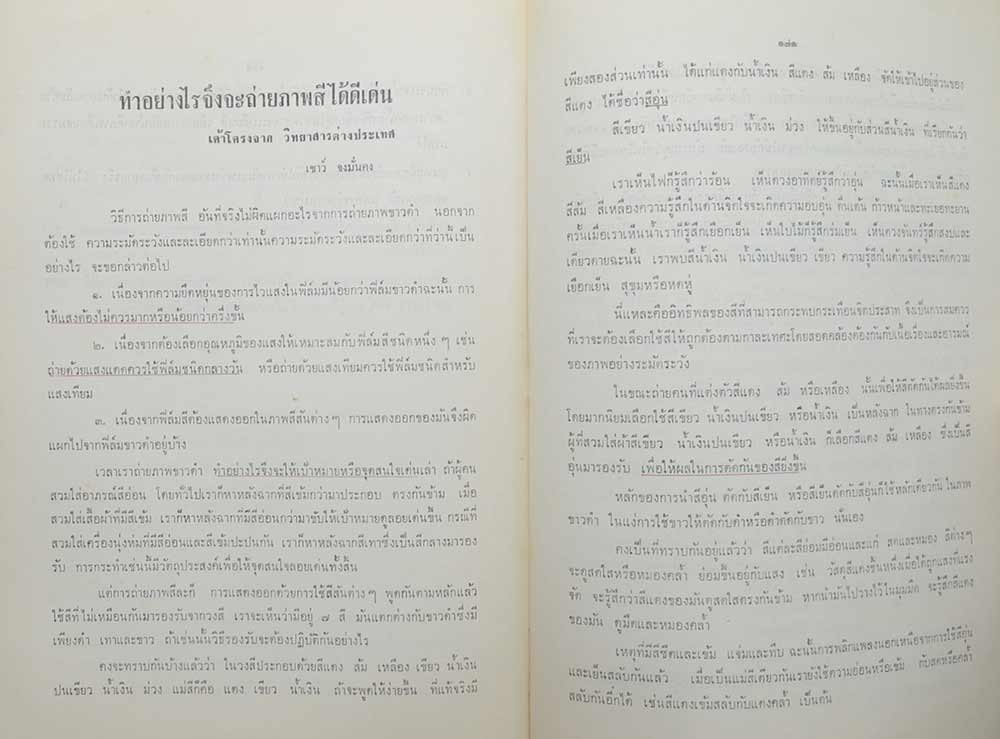 ทำอย่างไรจึงจะถ่ายภาพสีได้ดีเด่น
เค้าโครงจาก วิทยาสารต่างประเทศ
เชาว์ จงมั่นคง
วิธีการถ่ายภาพสี อันที่จริงไม่ผิดแผกอะไรจากการถ่ายภาพขาวดำ นอกจาก
ต้องใช้ ความระมัดระวังและละเอียดกว่าเท่านั้นความระมัดระวังและละเอียดกว่าที่ว่านี้เป็น
อย่างไร จะขอกล่าวต่อไป
๑. เนื่องจากความยืดหยุ่นของการไวแสงในฟิล์มมีน้อยกว่าฟิล์มขาวดำฉะนั้น การ
ให้แสงต้องไม่ควรมากหรือน้อยกว่าครึ่งขั้น
๒. เนื่องจากต้องเลือกอุณหภูมิของแสงให้เหมาะสมกับฟิล์มสีชนิดหนึ่ง ๆ เช่น
ถ่ายด้วยแสงแดดควรใช้ฟิล์มชนิดกลางวัน หรือถ่ายด้วยแสงเทียมควรใช้ฟิล์มชนิดสำหรับ
แสงเทียม
๓. เนื่องจากฟิล์มสีต้องแสดงออกในภาพสีสันต่างๆ การแสดงออกของมันจึงผิด
แผกไปจากฟิล์มขาวดำอยู่บ้าง
เวลาเราถ่ายภาพขาวดำ ทำอย่างไรจึงจะให้เป้าหมายหรือจุดสนใจเด่นเล่า ถ้าผู้คน
สวมใส่อาภรณ์สีอ่อน โดยทั่วไปเราก็หาหลังฉากที่สีเข้มกว่ามาประกอบ ตรงกันข้าม เมื่อ
สวมใส่เสื้อผ้าที่มีสีเข้ม เราก็หาหลังฉากที่มีสีอ่อนกว่ามาขับให้เป้าหมายดูลอยเด่นขึ้น กรณีที่
สวมใส่เครื่องนุ่งห่มที่มีสีอ่อนและสีเข้มปะปนกัน เราก็หาหลังฉากสีเทาซึ่งเป็นสีกลางมารอง
รับ การกระทำเช่นนี้มีวัตถุประสงค์เพื่อให้จุดสนใจลอยเด่นทั้งสิ้น
แต่การถ่ายภาพสีละก็ การแสดงออกด้วยการใช้สีสันต่างๆ พูดกันตามหลักแล้ว
ใช้สีที่ไม่เหมือนกันมารองรับจากวงสี เราจะเห็นว่ามีอยู่ ๗ สี มันแตกต่างกับขาวดำซึ่งมี
เพียงดำ เทาและขาว ถ้าเช่นนั้นวิธีรองรับจะต้องปฏิบัติกันอย่างไร
คงจะทราบกันบ้างแล้วว่า ในวงสีประกอบด้วยสีแดง ส้ม เหลือง เขียว น้ำเงิน
ปนเขียว น้ำเงิน ม่วง แม่สีก็คือ แดง เขียว น้ำเงิน ถ้าจะพูดให้ง่ายขึ้น ที่แท้จริงมี
๑๗๑
เพียงสองส่วนเท่านั้น ได้แก่แดงกับน้ำเงิน สีแดง ส้ม เหลือง จัดให้เข้าไปอยู่ส่วนของ
สีแดง ได้ชื่อว่าสีอุ่น
สีเขียว น้ำเงินปนเขียว น้ำเงิน ม่วง ให้ขึ้นอยู่กับส่วนสีน้ำเงิน ที่เรียกกันว่า
สีเย็น
เราเห็นไฟก็รู้สึกว่าร้อน เห็นดวงอาทิตย์รู้สึกว่าอุ่น ฉะนั้นเมื่อเราเห็นสีแดง
สีส้ม สีเหลืองความรู้สึกในด้านจิตใจจะเกิดความอบอุ่น ตื่นเต้น ก้าวหน้าและทะเยอทะยาน
ครั้นเมื่อเราเห็นน้ำเราก็รู้สึกเยือกเย็น เห็นใบไม้ก็รู้สึกร่มเย็น เห็นดวงจันทร์รู้สึกสงบและ
เดียวดายฉะนั้น เราพบสีน้ำเงิน น้ำเงินปนเขียว เขียว ความรู้สึกในด้านจิตใจจะเกิดความ
เยือกเย็น สุขุมหรือหดหู่
นี่แหละคืออิทธิพลของสีที่สามารถกระทบกระเทือนจิตประสาท จึงเป็นการสมควร
ที่เราจะต้องเลือกใช้สีให้ถูกต้องตามกาละเทศะโดยสอดคล้องต้องกันกับเนื้อเรื่องและอารมณ์
ของภาพอย่างระมัดระวัง
ในขณะถ่ายคนที่แต่งตัวสีแดง ส้ม หรือเหลือง นั้นเพื่อให้สีตัดกันได้ผลยิ่งขึ้น
โดยมากนิยมเลือกใช้สีเขียว น้ำเงินปนเขียว หรือน้ำเงิน เป็นหลังฉาก ในทางตรงกันข้าม
ผู้ที่สวมใส่ผ้าสีเขียว น้ำเงินปนเขียว หรือน้ำเงิน ก็เลือกสีแดง ส้ม เหลือง ซึ่งเป็นสี
อุ่นมารองรับ เพื่อให้ผลในการตัดกันของสียิ่งขึ้น
หลักของการนำสีอุ่น ตัดกับสีเย็น หรือสีเย็นตัดกับสีอุ่นก็ใช้หลักเดียวกัน ในภาพ
ขาวดำ ในแง่การใช้ขาวให้ตัดกับดำหรือดำตัดกับขาว นั้นเอง
คงเป็นที่ทราบกันอยู่แล้วว่า สีแต่ละสีย่อมมีอ่อนและแก่ สดและหมอง สีต่างๆ
จะดูสดใสหรือหมองคล้ำ ย่อมขึ้นอยู่กับแสง เช่น วัสดุสีแดงชิ้นหนึ่งเมื่อได้ถูกแสงที่แรง
จัด จะรู้สึกว่าสีแดงของมันดูสดใสตรงกันข้าม หากนำมันไปวางไว้ในมุมมืด จะรู้สึกสีแดง
ของมัน ดูมืดและหมองคล้ำ
เหตุที่มีสีซีดและเข้ม แจ่มและทึบ ฉะนั้นการพลิกแพลงนอกเหนือจากการใช้สีอุ่น
และเย็นสลับกันแล้ว เมื่อเป็นแม่สีเดียวกันเรายังใช้ความอ่อนหรือเข้ม กับสดหรือคล้ำ
สลับกันอีกได้ เช่นสีแดงเข้มสลับกับแดงคล้ำ เป็นต้น